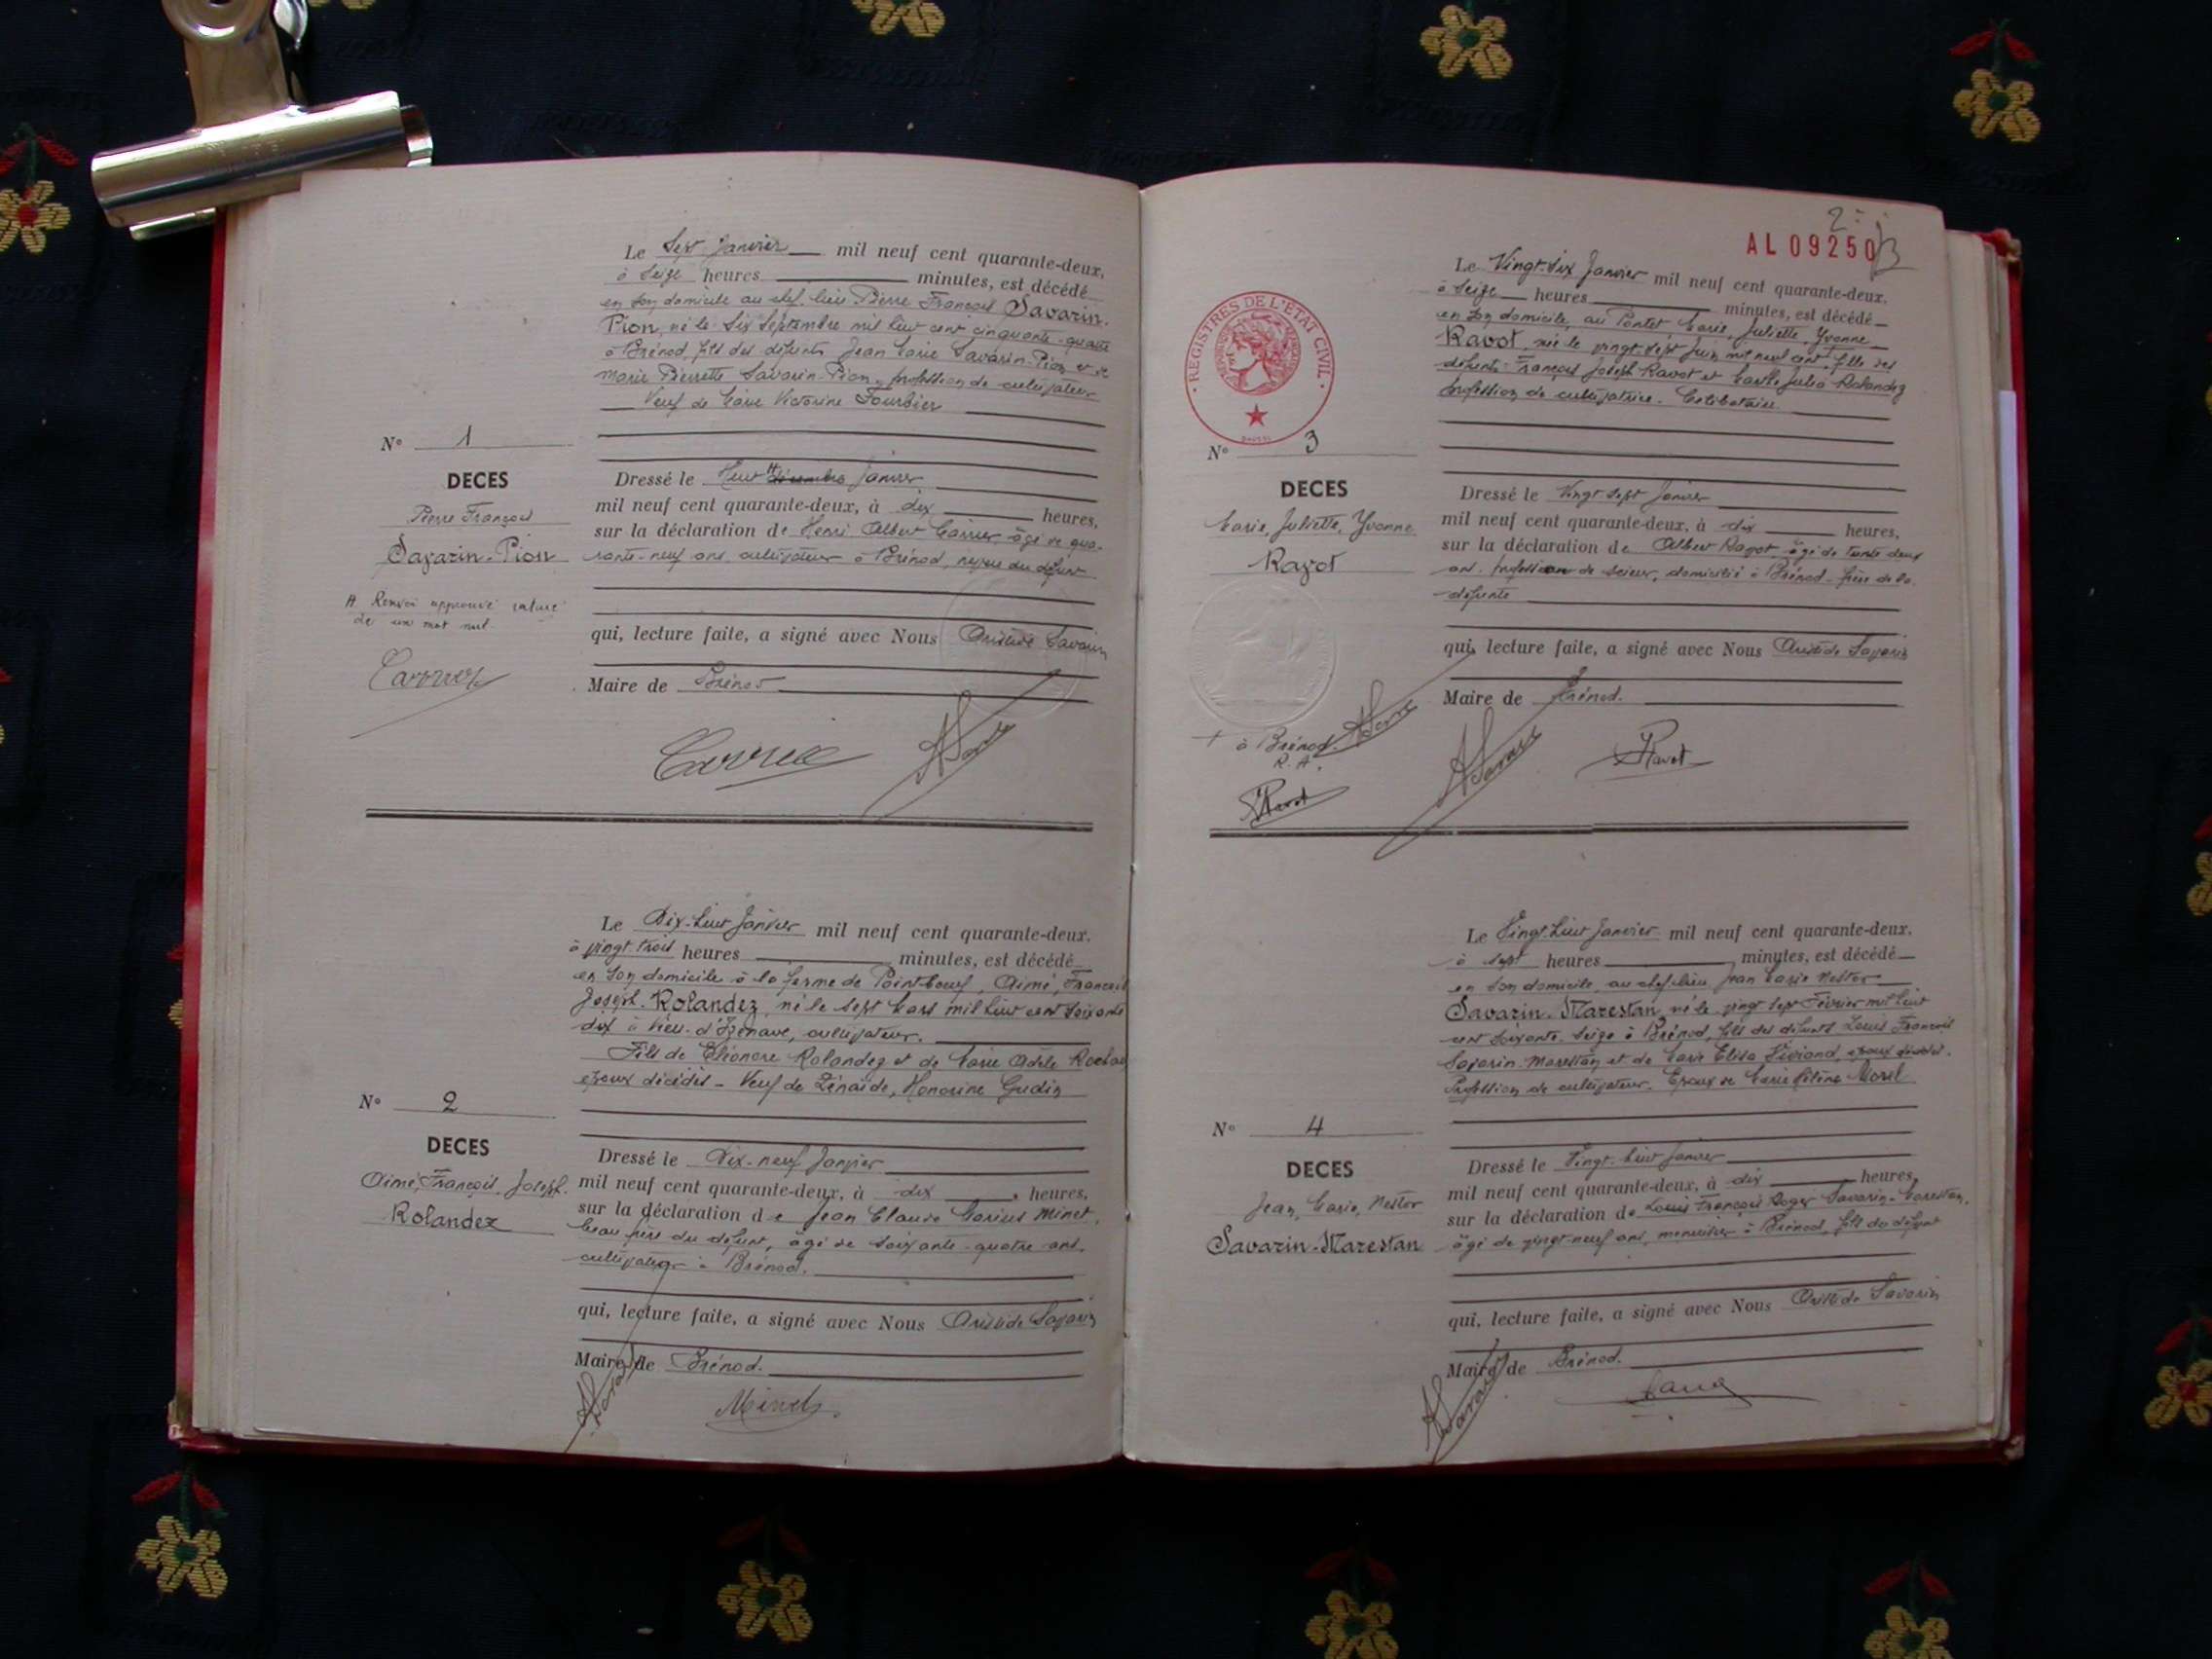 Le Sept Janvier mil neuf cent quarante-deux,
à seize heures minutes, est décédé
en son domicile au chef lieu Pierre François Savarin-
Pion, né le six Septembre mil huit cent cinquante-quatre
à Brénod, fils des défunts Jean Marie Savarin-Pion et de
Marie Pierrette Savarin-Pion, profession de cultivateur
Veuf de Marie Victorine Fourbier
N° 1
DECES
Pierre François
Savarin-Pion
A Renvoi approuvé rature
de un mot nul.
Carrier
Dressé le Huit décembre Janvier
mil neuf cent quarante-deux, à dix heures,
sur la déclaration de Henri Albert Carrier, âgé de qua-
rante-neuf ans, cultivateur à Brénod, neveu du défunt
qui, lecture faite, a signé avec Nous Aristide Savarin
Maire de Brénod
Carrier
Le Dix-huit Janvier mil neuf cent quarante-deux.
à vingt trois heures minutes, est décédé
en son domicile à la ferme de Point-boeuf, Aimé, François
Joseph. Rolandez, né le sept Mars mil huit cent soixante
dix à Vieu-d'Izenave, cultivateur.
Fils de Eléonore Rolandez et de Marie Adèle
époux décédés - Veuf de Zénaïde, Honorine Gudin
N° 2
DECES
Aimé, François, Joseph.
Rolandez
Dressé le Dix-neuf Janvier
mil neuf cent quarante-deux, à dix heures,
sur la déclaration de Jean Claude Marius Minet,
beau frère du défunt, âgé de soixante-quatre ans,
cultivateur à Brénod.
qui, lecture faite, a signé avec Nous Aristide Savarin
Maire de Brénod.
Minet
2
AL 09250
REGISTRES DE L'ÉTAT CIVIL
Le Vingt-six Janvier mil neuf cent quarante-deux.
à seize heures minutes, est décédé
en son domicile, au Pontet, Marie, Juliette, Yvonne
Ravot, née le vingt-sept Juin mil neuf cent, fille des
défunts François Joseph Ravot et Marie Julia Rolandez
profession de cultivatrice. Célibataire.
N° 3
DECES
Marie, Juliette, Yvonne
Ravot
Dressé le Vingt-sept Janvier
mil neuf cent quarante-deux, à dix heures,
sur la déclaration de Albert Ravot, âgé de trente deux
ans, profession de scieur, domicilié à Brénod - frère de la
défunte
qui, lecture faite, a signé avec Nous Aristide Savarin
Maire de Brénod.
+ à Brénod.
R. A.
Ravot
Ravot
Le Vingt-huit Janvier mil neuf cent quarante-deux.
à sept heures minutes, est décédé
en son domicile, au chef-lieu, Jean Marie Nestor
Savarin-Marestan, né le vingt sept Février mil huit
cent soixante-seize à Brénod, fils des défunts Louis François
Savarin-Marestan et de Marie Elisa Viviand, époux décédés.
Profession de cultivateur. Epoux de Marie Hélène Morel
N° 4
DECES
Jean, Marie, Nestor
Savarin-Marestan
Dressé le Vingt-huit Janvier
mil neuf cent quarante-deux, à dix heures,
sur la déclaration de Louis François Roger Savarin-Marestan,
âgé de vingt-neuf ans, menuisier à Brénod, fils du défunt
qui, lecture faite, a signé avec Nous Aristide Savarin
Maire de Brénod.